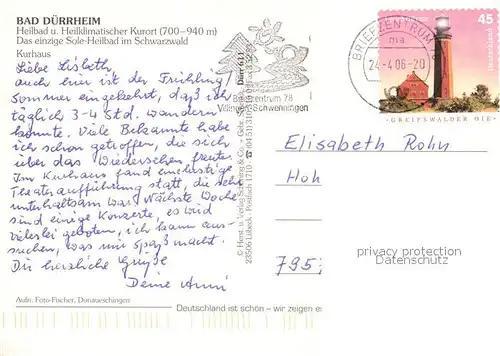 BAD DÜRRHEIM
Heilbad u. Heilklimatischer Kurort (700–940 m)
Das einzige Sole-Heilbad im Schwarzwald
Kurhaus
Liebe Lisbeth
auch hier ist der Frühling/
Sommer eingekehrt, daß ich
täglich 3-4 Std. wandern
konnte. Viele Bekannte habe
ich schon getroffen, die sich
über das Wiedersehen freuten.
Im Kurhaus fand eine lustige
Theateraufführung statt, die sehr
unterhaltsam war. Nächste Woche
sind einige Konzerte, es wird
vielerlei geboten, ich kann aus-
suchen, was mir Spaß macht.
Die herzliche Grüße
Deine Anni
Aufn. Foto-Fischer, Donaueschingen
Dürr 611
© Herst. u. Verlag Schöning & Co. + Gebr. Schmidt
23506 Lübeck, Postfach 1710
Briefzentrum 78
Villingen-Schwenningen
BRIEFZENTRUM
ma
24-4.06-20
45
Deutschland
GREIFSWALDER OIE
Elisabeth Rohn
Hoh
795
privacy protection
www.oldthing.de
Deutschland ist schön – wir zeigen es